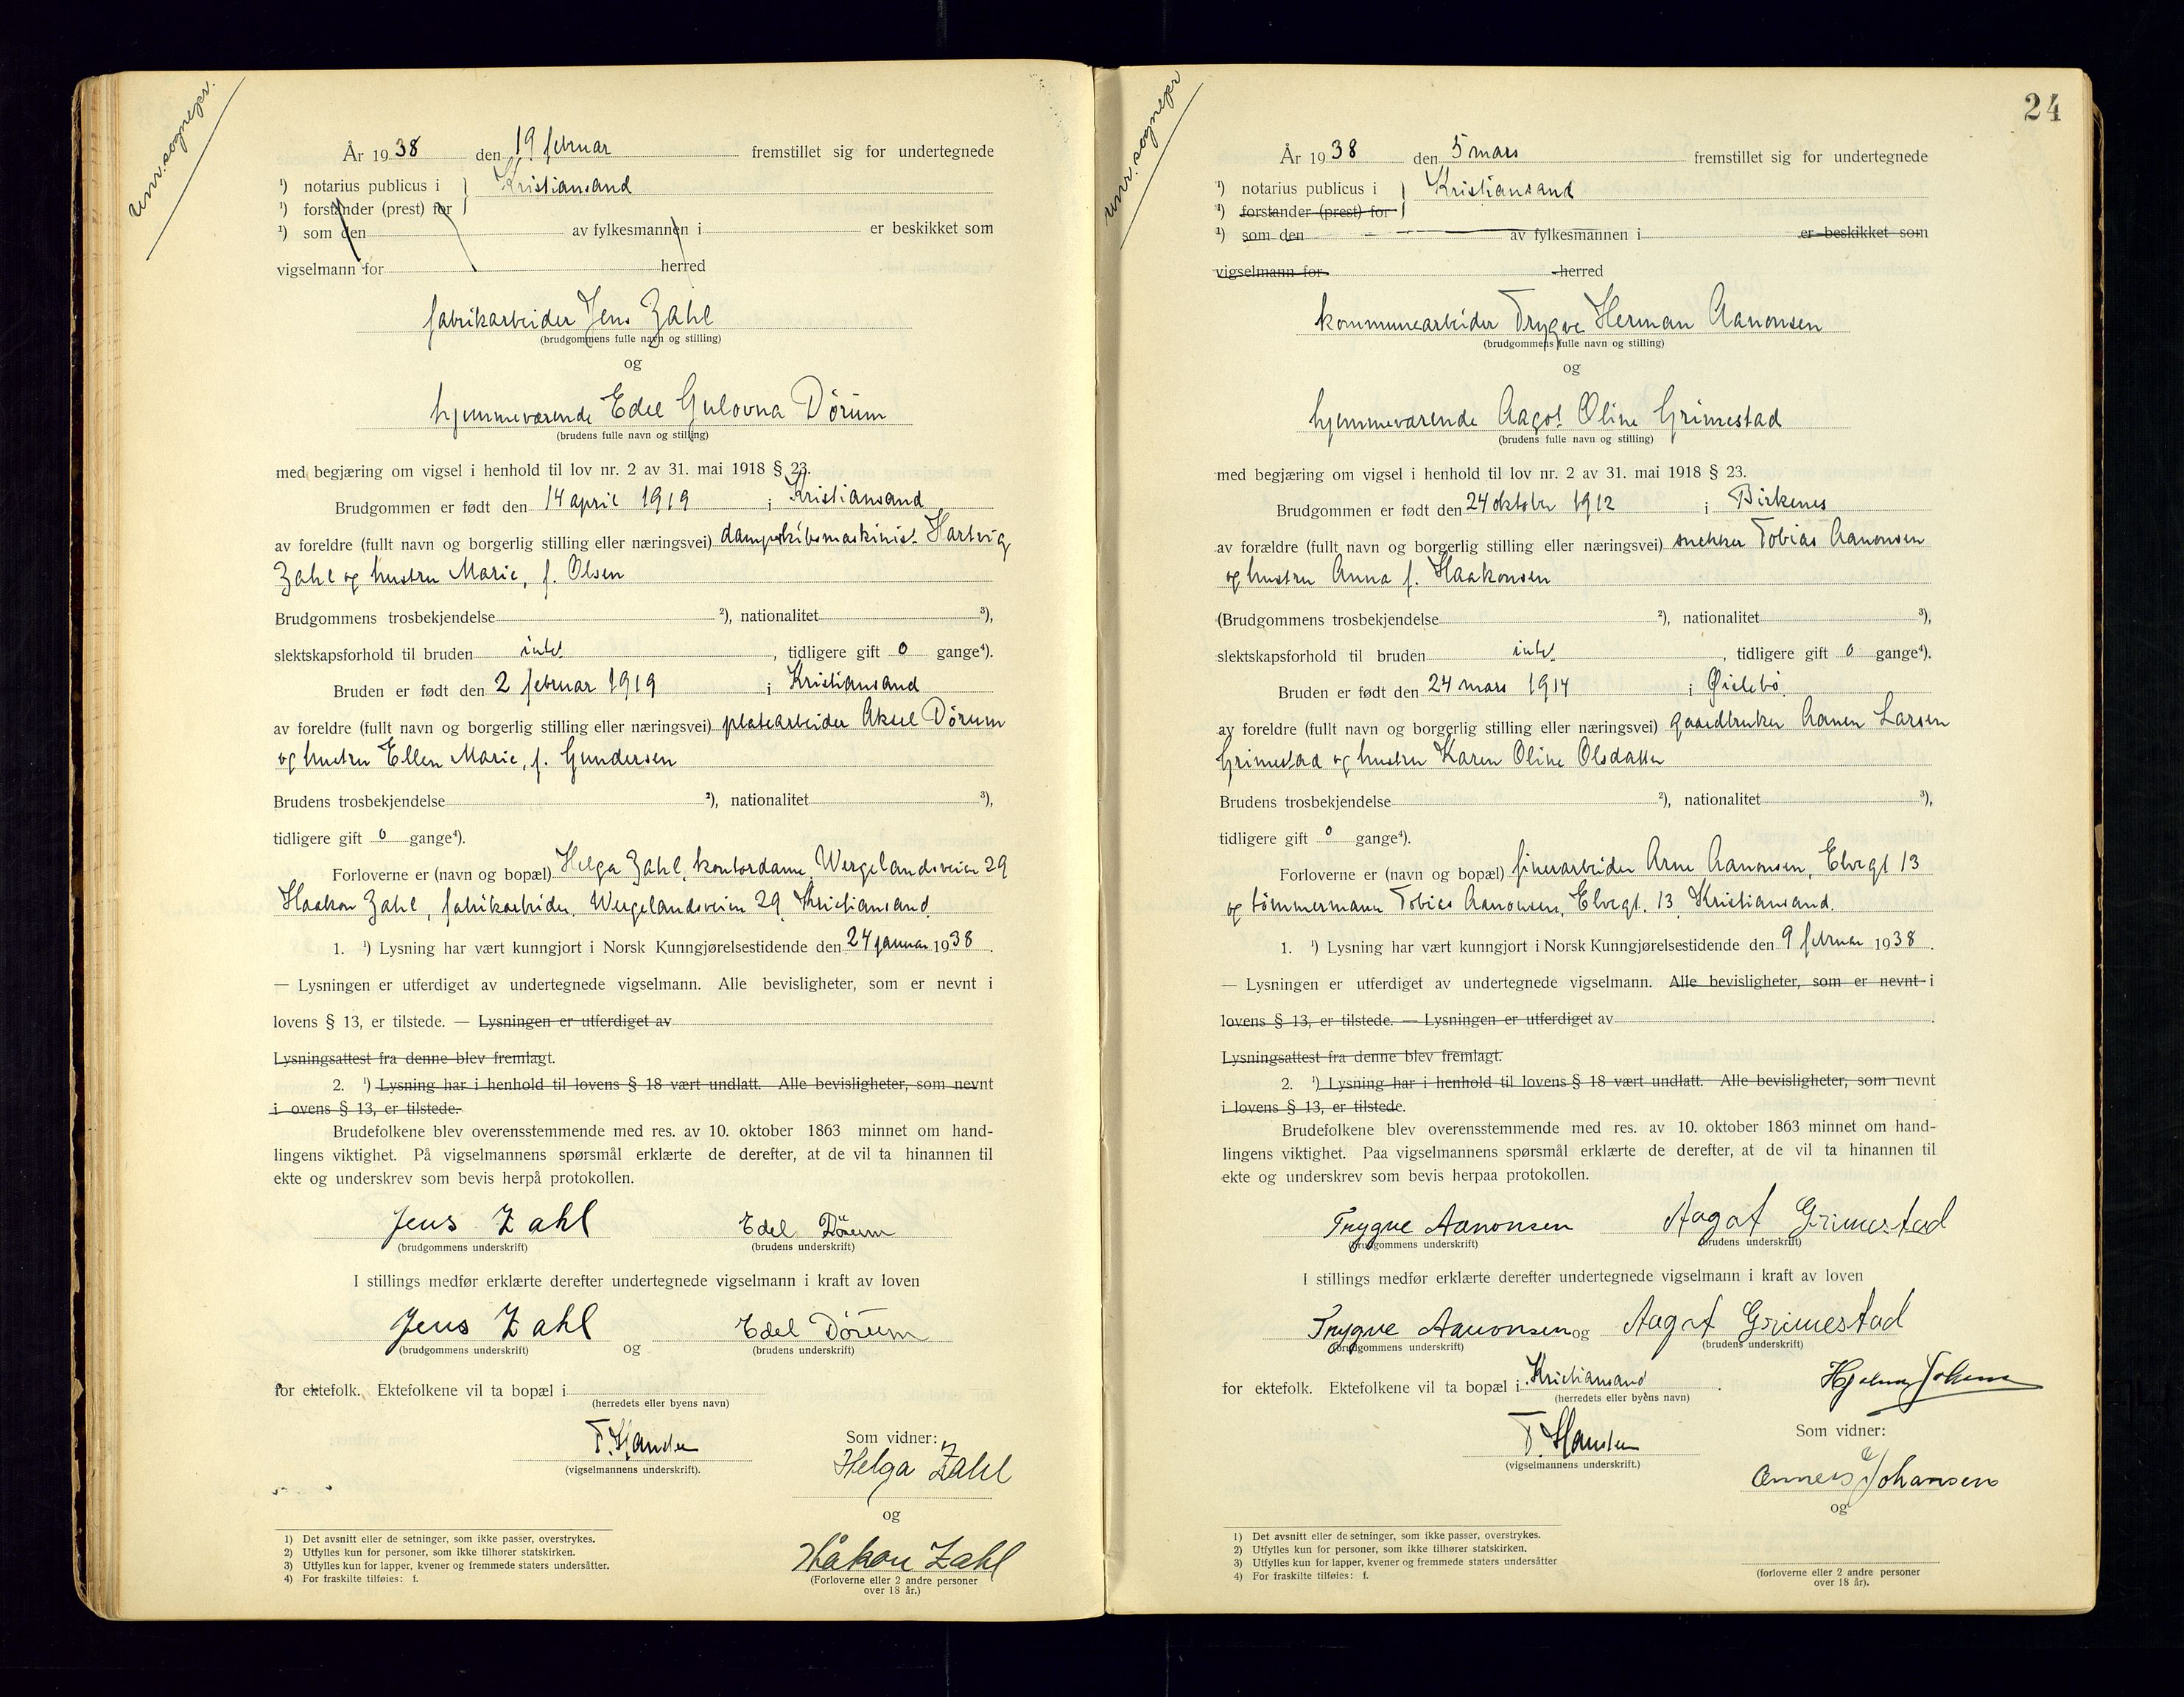 unr. sognepr.
År 1938 den 19 februar fremstillet sig for undertegnede
¹) notarius publicus i } Kristiansand
¹) forstander (prest) for
¹) som den av fylkesmannen i er beskikket som
vigselmann for herred
fabrikarbeider Jens Zahl
(brudgommens fulle navn og stilling)
og
hjemmeværende Edel Gulovna Dörum
(brudens fulle navn og stilling)
med begjæring om vigsel i henhold til lov nr. 2 av 31. mai 1918 § 23.
Brudgommen er født den 14 april 1919 i Kristiansand
av foreldre (fullt navn og borgerlig stilling eller næringsvei) dampskibsmaskinist Hartvig
Zahl og hustru Marie, f. Olsen
Brudgommens trosbekjendelse ²), nationalitet ³),
slektskapsforhold til bruden intet, tidligere gift 0 gange⁴).
Bruden er født den 2 februar 1919 i Kristiansand
av foreldre (fullt navn og borgerlig stilling eller næringsvei) platearbeider Aksel Dörum
og hustru Ellen Marie, f. Gundersen
Brudens trosbekjendelse ²), nationalitet ³),
tidligere gift 0 gange⁴).
Forloverne er (navn og bopæl) Helga Zahl, kontordame, Wergelandsveien 29
Haakon Zahl, fabrikarbeider, Wergelandsveien 29, Kristiansand.
1. ¹) Lysning har vært kunngjort i Norsk Kunngjørelsestidende den 24 januar 1938.
— Lysningen er utferdiget av undertegnede vigselmann. Alle bevisligheter, som er nevnt i
lovens § 13, er tilstede. — Lysningen er utferdiget av
Lysningsattest fra denne blev fremlagt.
2. ¹) Lysning har i henhold til lovens § 18 vært undlatt. Alle bevisligheter, som nevnt
i ovens § 13, er tilstede.
Brudefolkene blev overensstemmende med res. av 10. oktober 1863 minnet om hand-
lingens viktighet. På vigselmannens spørsmål erklærte de derefter, at de vil ta hinannen til
ekte og underskrev som bevis herpå protokollen.
Jens Zahl Edel Dörum
(brudgommens underskrift) (brudens underskrift)
I stillings medfør erklærte derefter undertegnede vigselmann i kraft av loven
Jens Zahl og Edel Dörum
(brudgommens underskrift) (brudens underskrift)
for ektefolk. Ektefolkene vil ta bopæl i
(herredets eller byens navn)
T. Hansen
(vigselmannens underskrift).
Som vidner:
Helga Zahl
og
Håkon Zahl
(Forloverne eller 2 andre personer
over 18 år.)
1) Det avsnitt eller de setninger, som ikke passer, overstrykes.
2) Utfylles kun for personer, som ikke tilhører statskirken.
3) Utfylles kun for lapper, kvener og fremmede staters undersåtter.
4) For fraskilte tilføies: f.
24
unr. sognepr
År 1938 den 5 mars fremstillet sig for undertegnede
¹) notarius publicus i } Kristiansand
¹) forstander (prest) for
¹) som den av fylkesmannen i er beskikket som
vigselmann for herred
kommunearbeider Trygve Herman Aanonsen
(brudgommens fulle navn og stilling)
og
hjemmeværende Aagot Oline Grimestad
(brudens fulle navn og stilling)
med begjæring om vigsel i henhold til lov nr. 2 av 31. mai 1918 § 23.
Brudgommen er født den 24 oktober 1912 i Birkenes
av forældre (fullt navn og borgerlig stilling eller næringsvei) snekker Tobias Aanonsen
og hustru Anna f. Haakonsen
(Brudgommens trosbekjendelse ²), nationalitet ³),
slektskapsforhold til bruden intet, tidligere gift 0 gange⁴).
Bruden er født den 24 mars 1914 i Øislebö.
av foreldre (fullt navn og borgerlig stilling eller næringsvei) gaardbruker Aanen Larsen
Grimestad og hustru Karen Oline Olsdatter
Brudens trosbekjendelse ²), nationalitet ³),
tidligere gift 0 gange⁴).
Forloverne er (navn og bopæl) finerarbeider Arne Aanonsen, Elvegt 13
og tömmermann Tobias Aanonsen, Elvegt. 13, Kristiansand.
1. ¹) Lysning har vært kunngjort i Norsk Kunngjørelsestidende den 9 februar 1938.
— Lysningen er utferdiget av undertegnede vigselmann. Alle bevisligheter, som er nevnt i
lovens § 13, er tilstede. — Lysningen er utferdiget av
Lysningsattest fra denne blev fremlagt.
2. ¹) Lysning har i henhold til lovens § 18 vært undlatt. Alle bevisligheter, som nevnt
i lovens § 13, er tilstede.
Brudefolkene blev overensstemmende med res. av 10. oktober 1863 minnet om hand-
lingens viktighet. Paa vigselmannens spørsmål erklærte de derefter, at de vil ta hinannen til
ekte og underskrev som bevis herpaa protokollen.
Trygve Aanonsen Aagot Grimestad
(brudgommens underskrift) (brudens underskrift)
I stillings medfør erklærte derefter undertegnede vigselmann i kraft av loven
Trygve Aanonsen og Aagot Grimestad
(brudgommens underskrift) (brudens underskrift)
for ektefolk. Ektefolkene vil ta bopæl i Kristiansand.
(herredets eller byens navn)
T. Hansen
(vigselmannens underskrift.)
Som vidner:
Johansen
og
(forloverne eller 2 andre personer
over 18 år).
1) Det avsnitt eller de setninger, som ikke passer, overstrykes.
2) Utfylles kun for personer, som ikke tilhører statskirken.
3) Utfylles kun for lapper, kvener og fremmede staters undersåtter
4) For fraskilte tilføies: f.